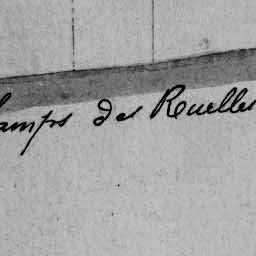 Camps des Ruelles